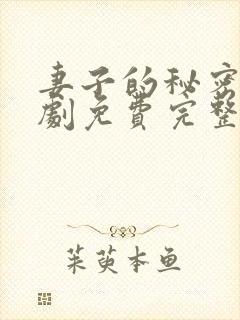 妻子的秘密
劇免費完整
茱萸本鱼